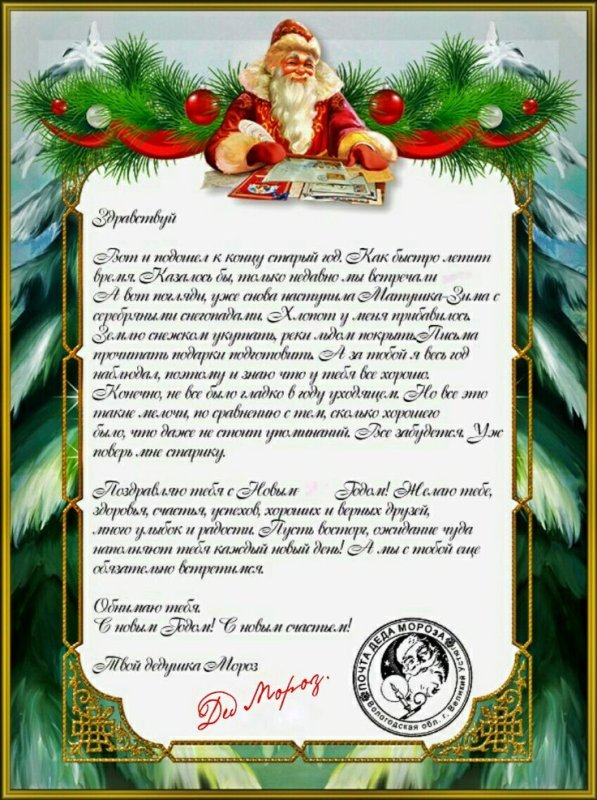 Здравствуй
Вот и подошел к концу старый год. Как быстро летит
время. Казалось бы, только недавно мы встречали
А вот погляди, уже снова наступила Матушка-Зима с
серебряными снегопадами. Хлопот у меня прибавилось.
Землю снежком укутать, реки льдом покрыть.Письма
прочитать подарки подготовить. А за тобой я весь год
наблюдал, поэтому и знаю что у тебя все хорошо.
Конечно, не все было гладко в году уходящем. Но все это
такие мелочи, по сравнению с тем, сколько хорошего
было, что даже не стоит упоминаний. Все забудется. Уж
поверь мне старику.
Поздравляю тебя с Новым Годом! Желаю тебе,
здоровья, счастья, успехов, хороших и верных друзей,
много улыбок и радости. Пусть восторг, ожидание чуда
наполняют тебя каждый новый день! А мы с тобой еще
обязательно встретимся.
Обнимаю тебя.
С новым Годом! С новым счастьем!
Твой дедушка Мороз
Дед Мороз.
ПОЧТА ДЕДА МОРОЗА
Вологодская обл. г. Великий Устюг